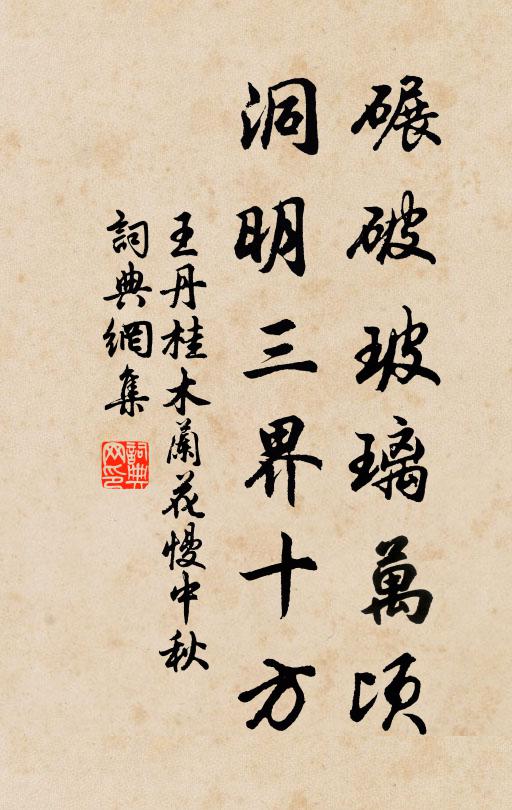 碾破玻璃萬頃
洞明三界十方
王丹桂木蘭花慢中秋
詞典網集
詞典網印